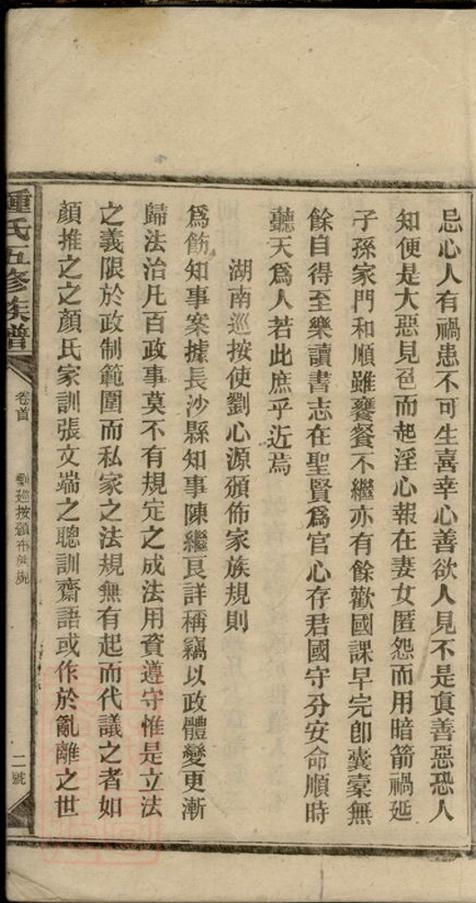 忌心人有禍患不可生喜幸心善欲人見不是真善惡恐人
知便是大惡見色而起淫心報在妻女匿怨而用暗箭禍延
子孫家門和順雖饔餐不繼亦有餘歡國課早完卽囊橐無
餘自得至樂讀書志在聖賢爲官心存君國守分安命順時
聽天爲人若此庶乎近焉
湖南巡按使劉心源頒佈家族規則
爲飭知事案據長沙縣知事陳繼良詳稱竊以政體變更漸
歸法治凡百政事莫不有規定之成法用資遵守惟是立法
之義限於政制範圍而私家之法規無有起而代議之者如
顏推之之顏氏家訓張文端之聰訓齋語或作於亂離之世
鍾氏五修族譜
卷首
巡按頒布法規
二號